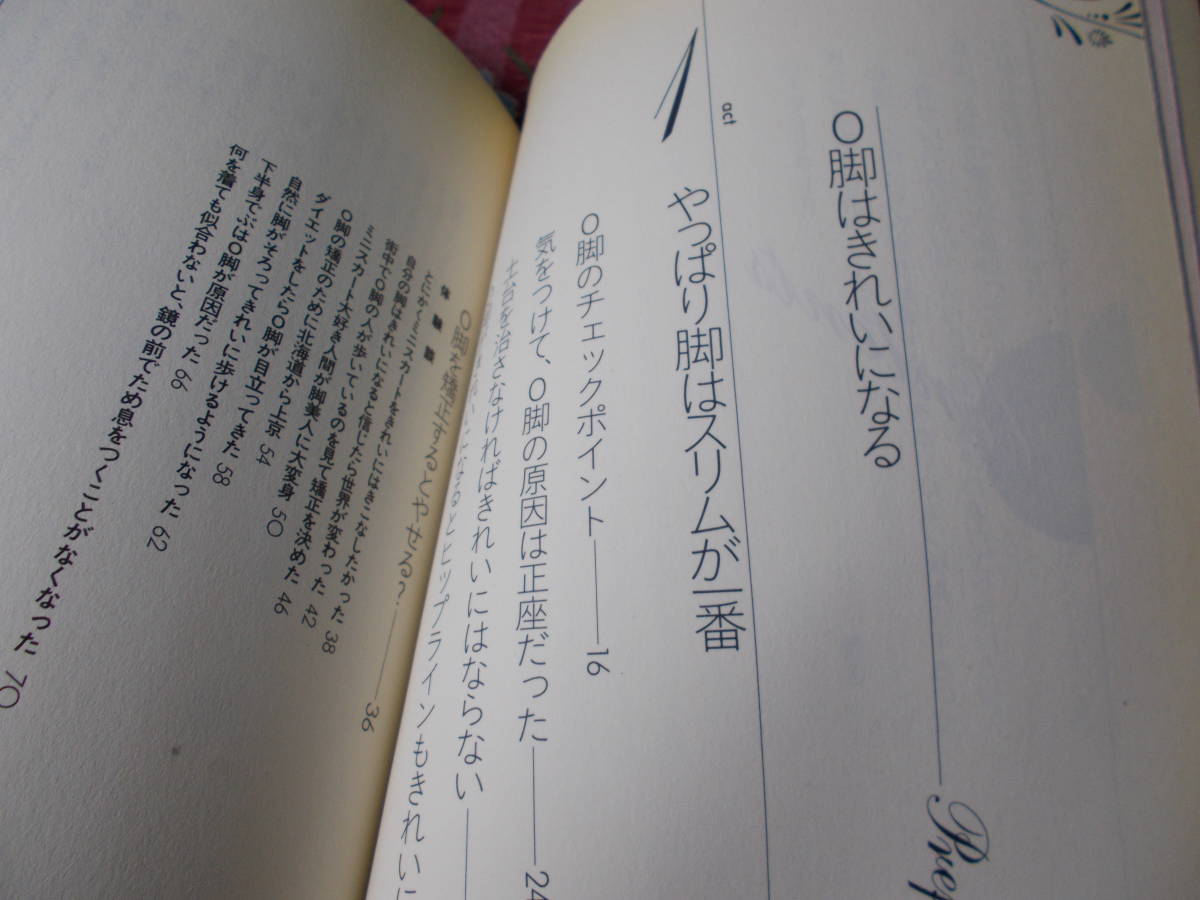 O脚はきれいになる
act
1
やっぱり脚はスリムが一番
O脚のチェックポイント——16
気をつけて、O脚の原因は正座だった——24
土台を治さなければきれいにはならない
なるとヒップラインもきれいに
O脚を矯正するとやせる?——36
体験談
とにかくミニスカートをきれいにはきこなしたかった 38
自分の脚はきれいになると信じたら世界が変わった 42
街中でO脚の人が歩いているのを見て矯正を決めた 46
ミニスカート大好き人間が脚美人に大変身 50
O脚の矯正のために北海道から上京 54
ダイエットをしたらO脚が目立ってきた 58
自然に脚がそろってきれいに歩けるようになった 62
下半身でぶはO脚が原因だった 66
何を着ても似合わないと、鏡の前でため息をつくことがなくなった 70